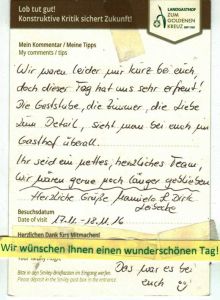 Lob tut gut!
Konstruktive Kritik sichert Zukunft!
LANDGASTHOF
ZUM
GOLDENEN
KREUZ
Mein Kommentar / Meine Tipps
My comments / tips
Wir waren leider nur kurz bei euch,
doch dieser Tag hat uns sehr erfreut!
Die Gaststube, die Zimmer, die Liebe
zum Detail, sieht man bei euch im
Gasthof überall.
Ihr seid ein nettes, herzliches Team,
wir wären gerne noch länger geblieben.
Herzliche Grüße Manuela & Dirk
Besuchsdatum
Date of visit 17.11.-18.11.16
Herzlichen Dank fürs Mitmachen!
Wir wünschen Ihnen einen wunderschönen Tag!
Bitte in den Smiley-Briefkasten im Eingang werfen.
Please deposit in the Smiley post box in the entrance.
Das war es bei
euch